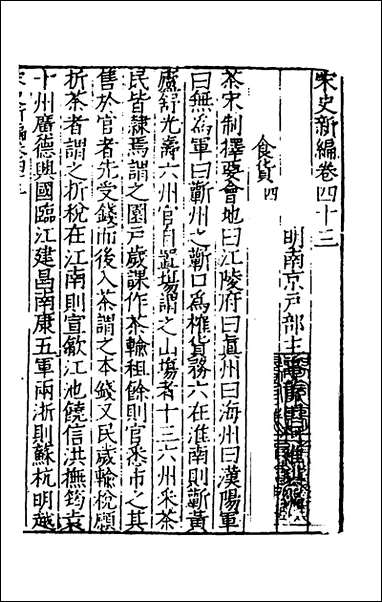 宋史新編卷四十三
明南京戶部主事
食貨四
茶宋制擇要會地曰江陵府曰眞州曰海州曰漢陽軍
曰無為軍曰蘄州之蘄口為榷貨務六在淮南則蘄黃
廬舒光壽六州官自置塲謂之山塲者十三六州采茶
民皆隸焉謂之園戶歲課作茶輸租餘則官悉市之其
售於官者先受錢而後入茶謂之本錢又民歲輸稅願
折茶者謂之折稅在江南則宣歙江池饒信洪撫筠袁
十州廣德興國臨江建昌南康五軍兩浙則蘇杭明越
宋史新編卷四十三